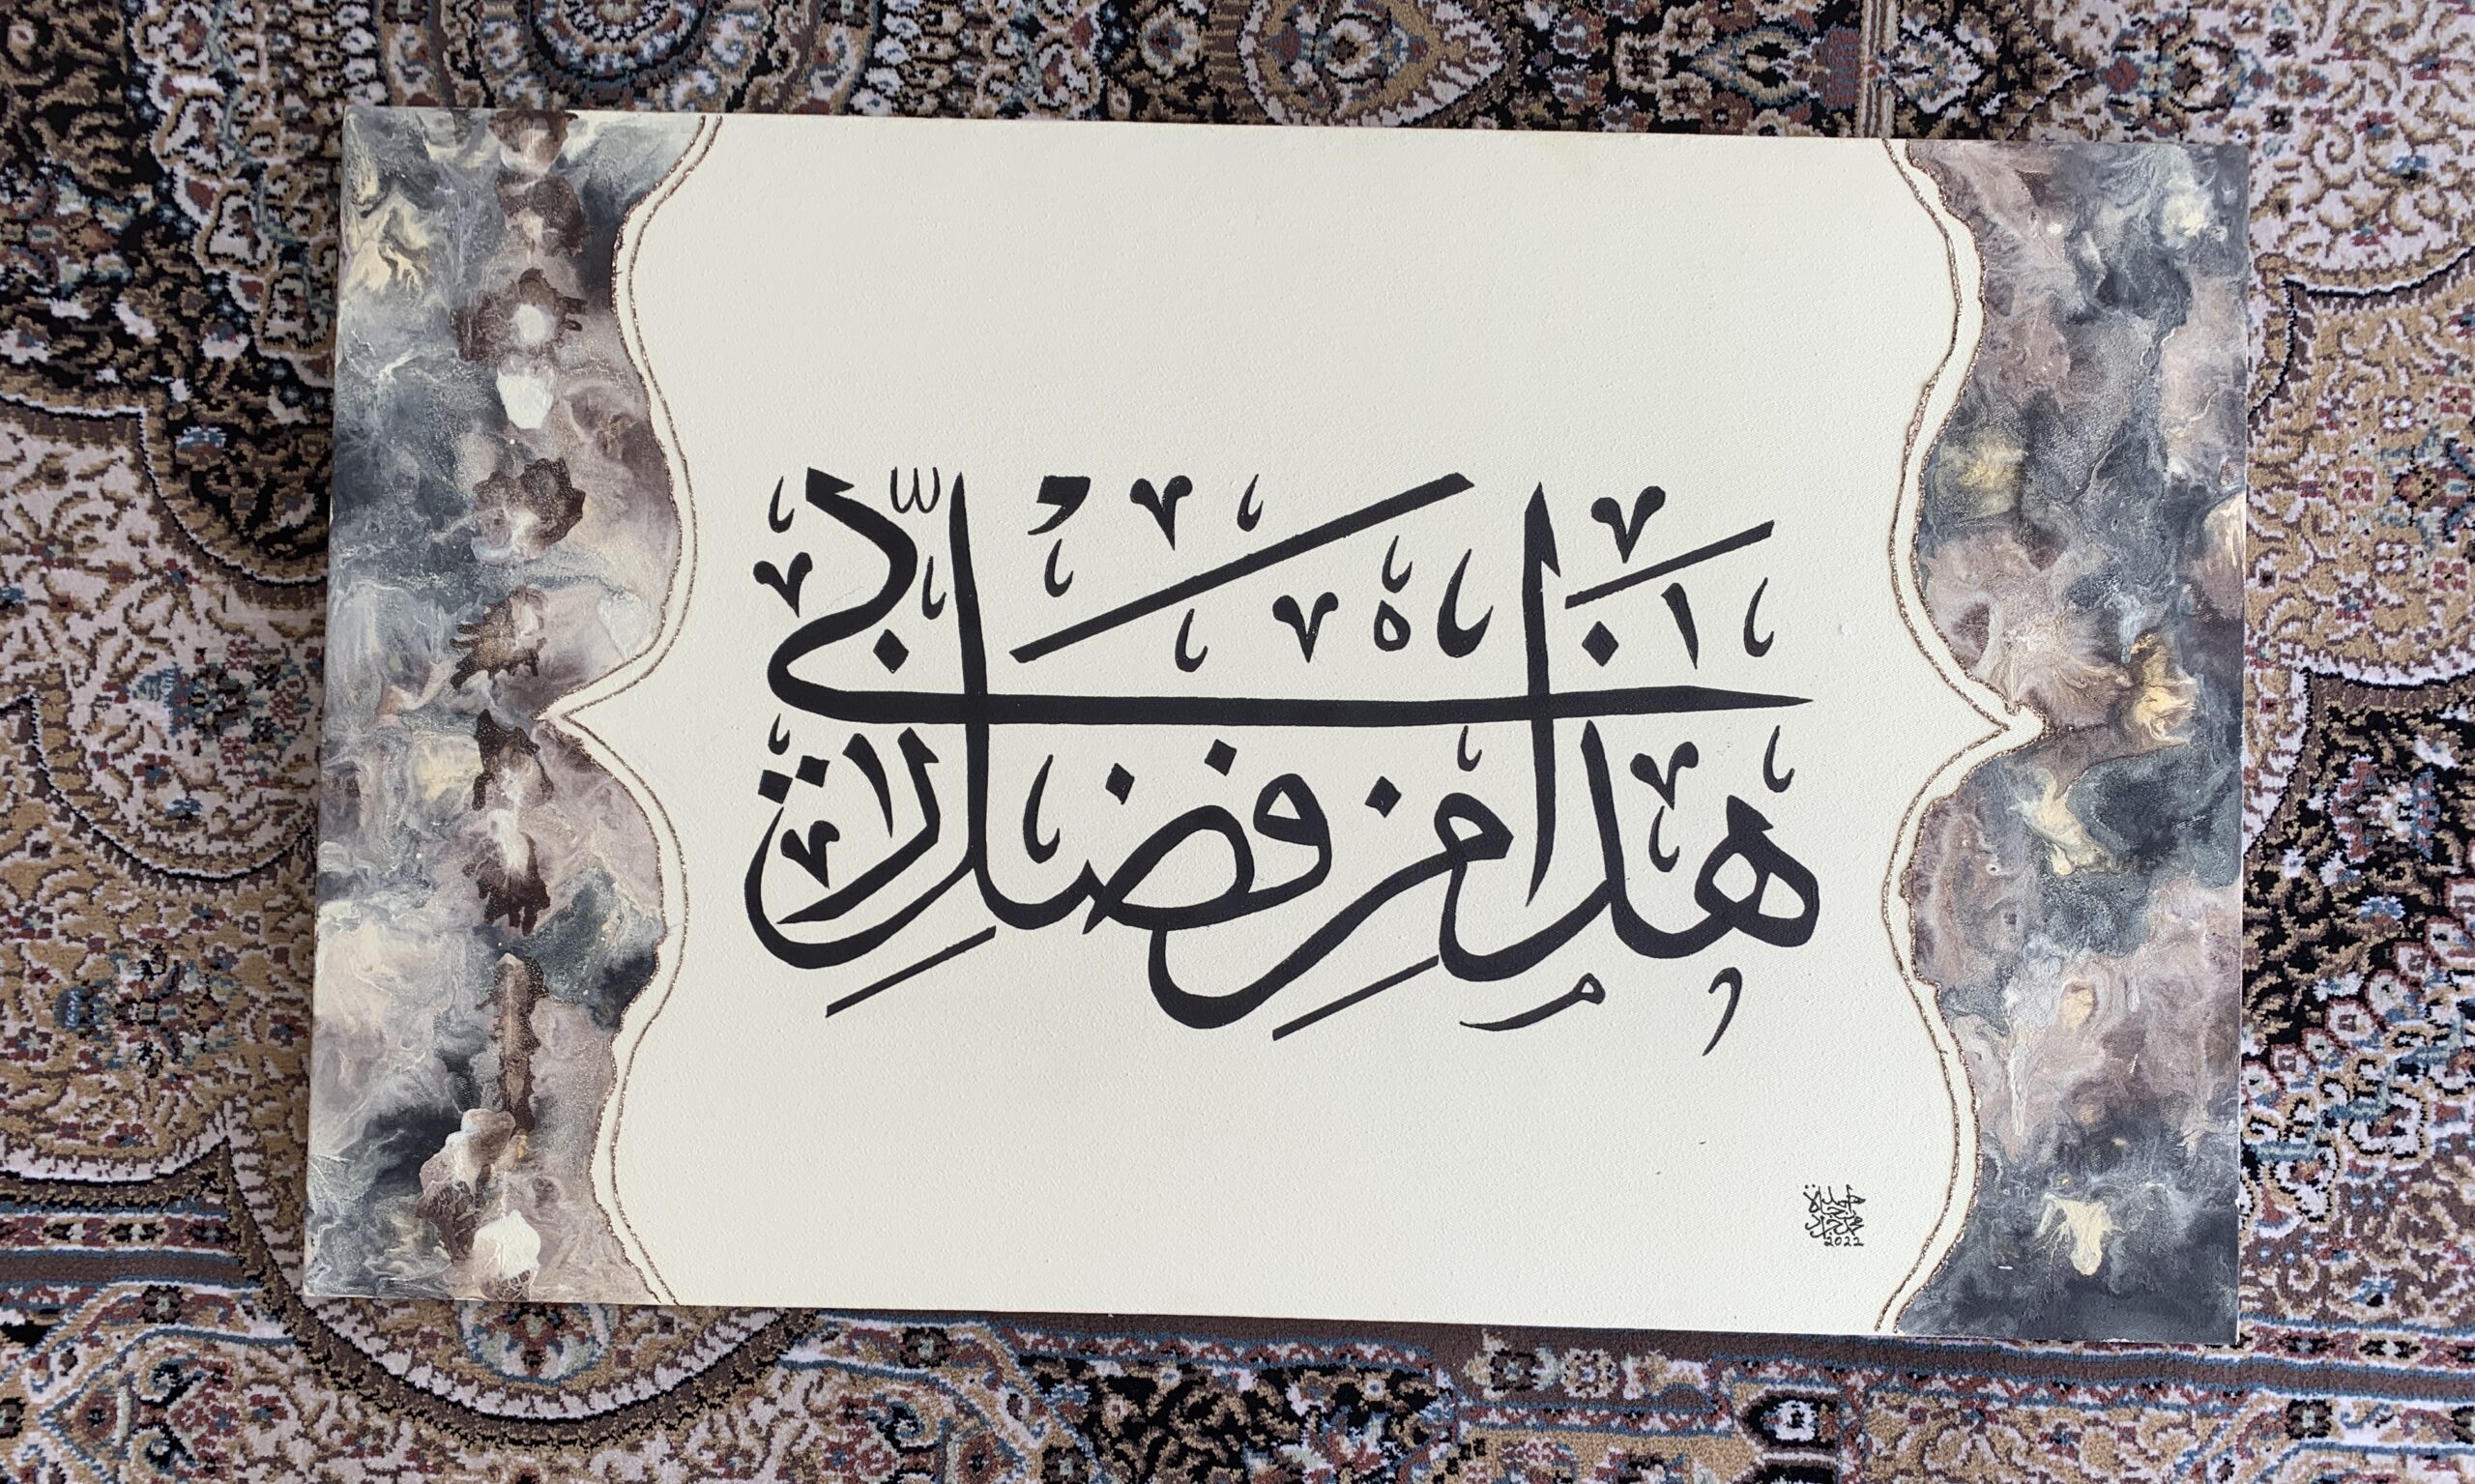 هذا من فضل ربي
2022